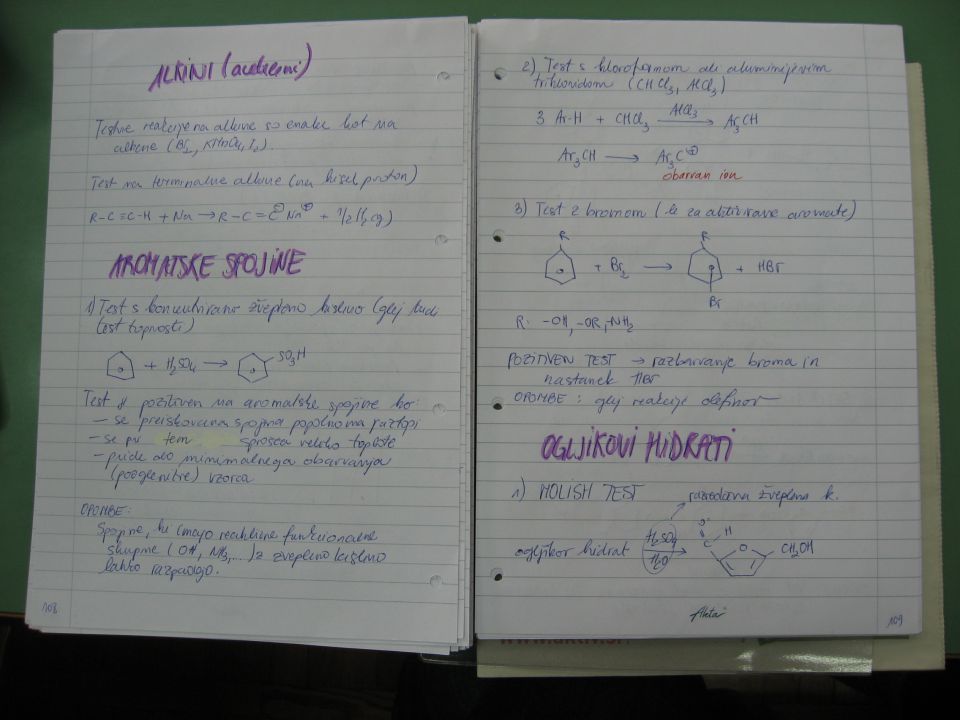 ALKINI (acetileni)
Testne reakcije na alkine so enake kot na
alkene (Br2, KMnO4, I2).
Test na terminalne alkine (na kisel proton)
R-C≡C-H + Na → R-C≡C⊖ Na⊕ + 1/2 H2(g)
AROMATSKE SPOJINE
1) Test s koncentrirano žvepleno kislino (glej tudi
test topnosti)
+ H2SO4 → SO3H
Test je pozitiven na aromatske spojine ko:
- se preiskovana spojina popolnoma raztopi
- se pri tem sprošča veliko toplote
- pride do minimalnega obarvanja
(pooglenitve) vzorca
OPOMBE:
Spojine, ki imajo reaktivne funkcionalne
skupine (OH, NH3,...) z žvepleno kislino
lahko razpadejo.
108
2) Test s kloroformom ali aluminijevim
trikloridom (CHCl3, AlCl3)
3 Ar-H + CHCl3 AlCl3 → Ar3CH
Ar3CH → Ar3C⊕
obarvan ion
3) Test z bromom (le za aktivirane aromate)
R R
+ Br2 → + HBr
Br
R: -OH, -OR, -NH2
POZITIVEN TEST → razbarvanje broma in
nastanek HBr
OPOMBE: glej reakcije olefinov
OGLJIKOVI HIDRATI
1) MOLISH TEST razredčena žveplena k.
ogljikov hidrat H2SO4 H2O → O C H O CH2OH
Akta
109